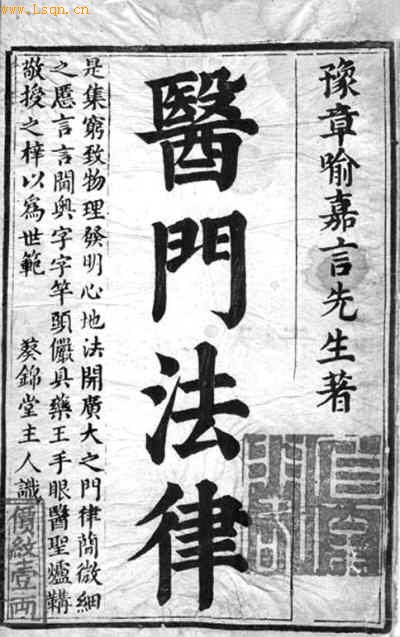 www.Lsqn.cn
豫章喻嘉言先生著
醫門法律
是集窮致物理發明心地法開廣大之門律簡微細
之愿言言闡奧字字竿頭儼具藥王手眼醫聖爐鞲
敬授之梓以為世範 葵錦堂主人識
價紋壹兩